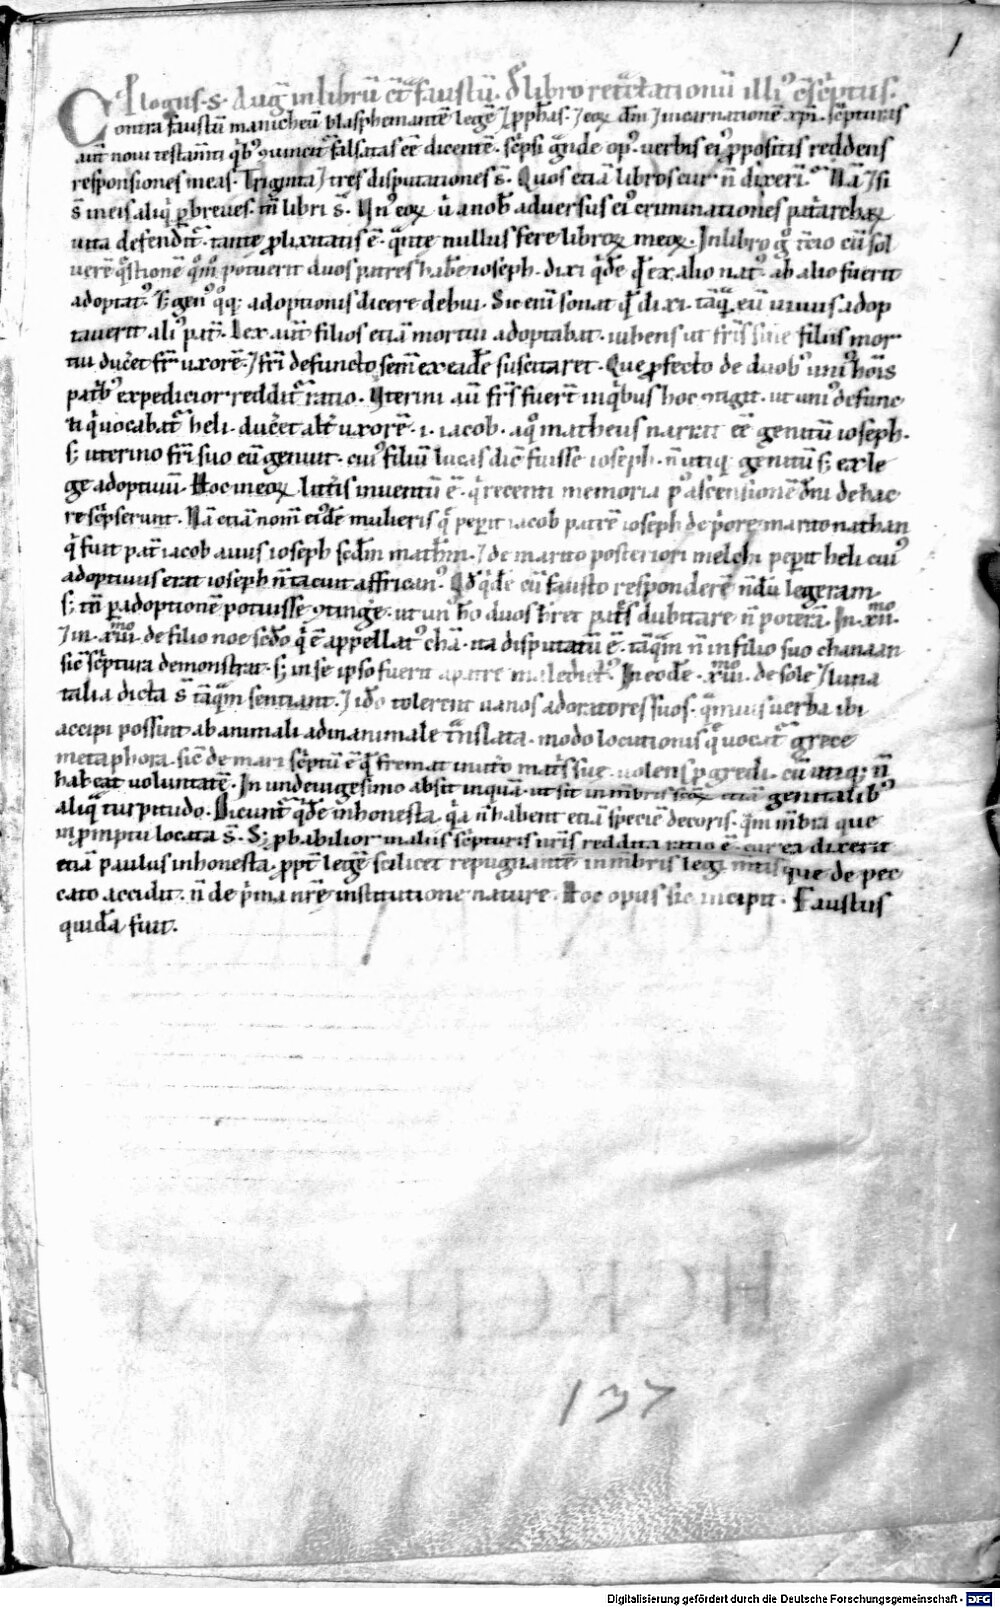 1
Plogus · s · Augˉ in librū ctͣ faustū · ď libro retͣctationū illiꝰ excˉeptus ·
Contra faustū manicheū blasphemantē legē ⁊ pphˉas · ⁊ eoꝝ dˉm ⁊ incarnationē xpˉi · scˉpturas
aut̄ noui testam̄ti q̇bꝰ ↄuinciťˉ falsatas eē dicentē · scˉpsi gͣnde opꝰ · uerbis eiꝰ ppositis reddens
responsiones meas · Triginta ⁊ tres disputationes s̄ · Quos etiā libros cur n̄ dixerī · Nā ⁊ si
s̄ in eis aliq̇ pbreues · tm̄ libri s̄ · Vnꝰ eoꝝ u̇ a nob̄ aduersus eiꝰ criminationes patˉarcharꝝ
uita defendiťˉ · tante ꝓlixitatis ē · qͣnte nullus fere libroꝝ meoꝝ · In libro gͦ t̄cio cū sol
uerē qͣstionē qͦm̄ potuerit duos patres hab̄e ioseph · dixi q̇dē qͩ ex alio natꝰ · ab alio fuerit
adoptatꝰ · S; genꝰ qͦq; adoptionis dicere debui · Sic enī sonat qͩ dixi · tāqͣ eū uiuus adop
tauerit aliꝰ pat̄ · Lex aut̄ filios etiā mortui adoptabat · iubens ut fr̄is sine filiis mor
tui duc̄et fr̄ uxorē · ⁊ fr̄i defuncto sem̄ ex eadē suscitaret · Que ꝓfecto de duobꝰ uniꝰ hoīs
patˉbꝰ expedicior redditͬ ratio · Vterini aū fr̄s fuer̄t in q̇bus hoc ↄtigit · ut uniꝰ defunc
ti q̇ uocabatͬ heli · duc̄et alt̄ uxorē · i · iacob · a qͦ matheus narrat eē genitū ioseph ·
S; uterino fr̄i suo eū genuit · cuiꝰ filiū lucas dic̄ fuisse ioseph · n̄ utiq; genitū s; ex le
ge adoptiuū · Hoc in eoꝝ litt̄is inuentū ē · q̇ recenti memoria pꝰ ascensionē dn̄i de hac
re scˉpserunt · Nā etiā nom̄ eiꝰdē mulieris q̄ pep̄it iacob patrē ioseph de pͥore marito nathan
q̇ fuit pat̄ iacob auus ioseph scd̄m math̄m · ⁊ de marito posteriori melchi pep̄it heli cuiꝰ
adoptiuus erat ioseph n̄ tacuit affricanꝰ · Qd̄ q̇dē cū fausto responderē n̄dū legeram
S; tm̄ p adoptionē potuisse ↄtinge · ut unꝰ hō duos hr̄et pat̄s dubitare n̄ poterā · In · xii ·mo
⁊ in · xiii ·mo de filio noe scd̄o q̇ ē appellatꝰ chā · ita disputatū ē · tāqͣm n̄ in filio suo chanaan
sic̄ scˉptura demonstrat · S; in se ipso fuerit a patre maledictꝰ · In eodē · xiii ·mo de sole ⁊ luna
talia dicta s̄ tāqͣm sentiant · ⁊ id̄o tolerent uanos adoratores suos · qͣmuis uerba ibi
accipi possint ab animali ad inanimale tˉnslata · modo locutionis q̄ uocatͬ grece
metaphora · sic̄ de mari scˉptū ē qͩ fremat in ut̄o mat̄s sue uolens pgredi · cū utiq; n̄
habeat uoluntatē · In undeuigesimo absit inquā · ut sit in mēbris scˉoꝝ etiā genitalibꝰ
aliq̄ turpitudo · Dicuntͬ q̇dē inhonesta · q̇a n̄ habent etiā speciē decoris · qͣm mēbra que
in promptu locata s̄ · S; pbabilior in aliis scˉpturis nr̄is reddita ratio ē · cur ea dixerit
etiā paulus inhonesta · ppt̄ legē scilicet repugnantē in mēbris legi mentisque de pec
cato accidit · n̄ de pͥma nr̄e institutione nature · Hoc opus sic incipit · Faustus
quidā fuit ·
137
Digitalisierung gefördert durch die Deutsche Forschungsgemeinschaft - DFG